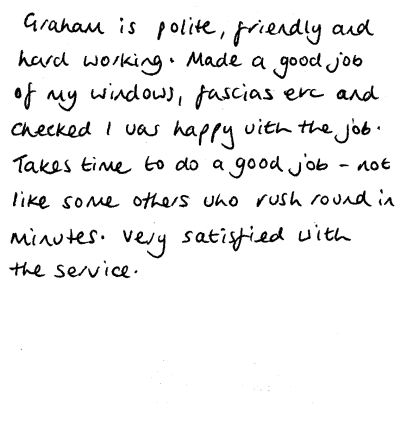 Graham is polite, friendly and
hard working. Made a good job
of my windows, fascias etc and
checked I was happy with the job.
Takes time to do a good job - not
like some others who rush round in
minutes. Very satisfied with
the service.